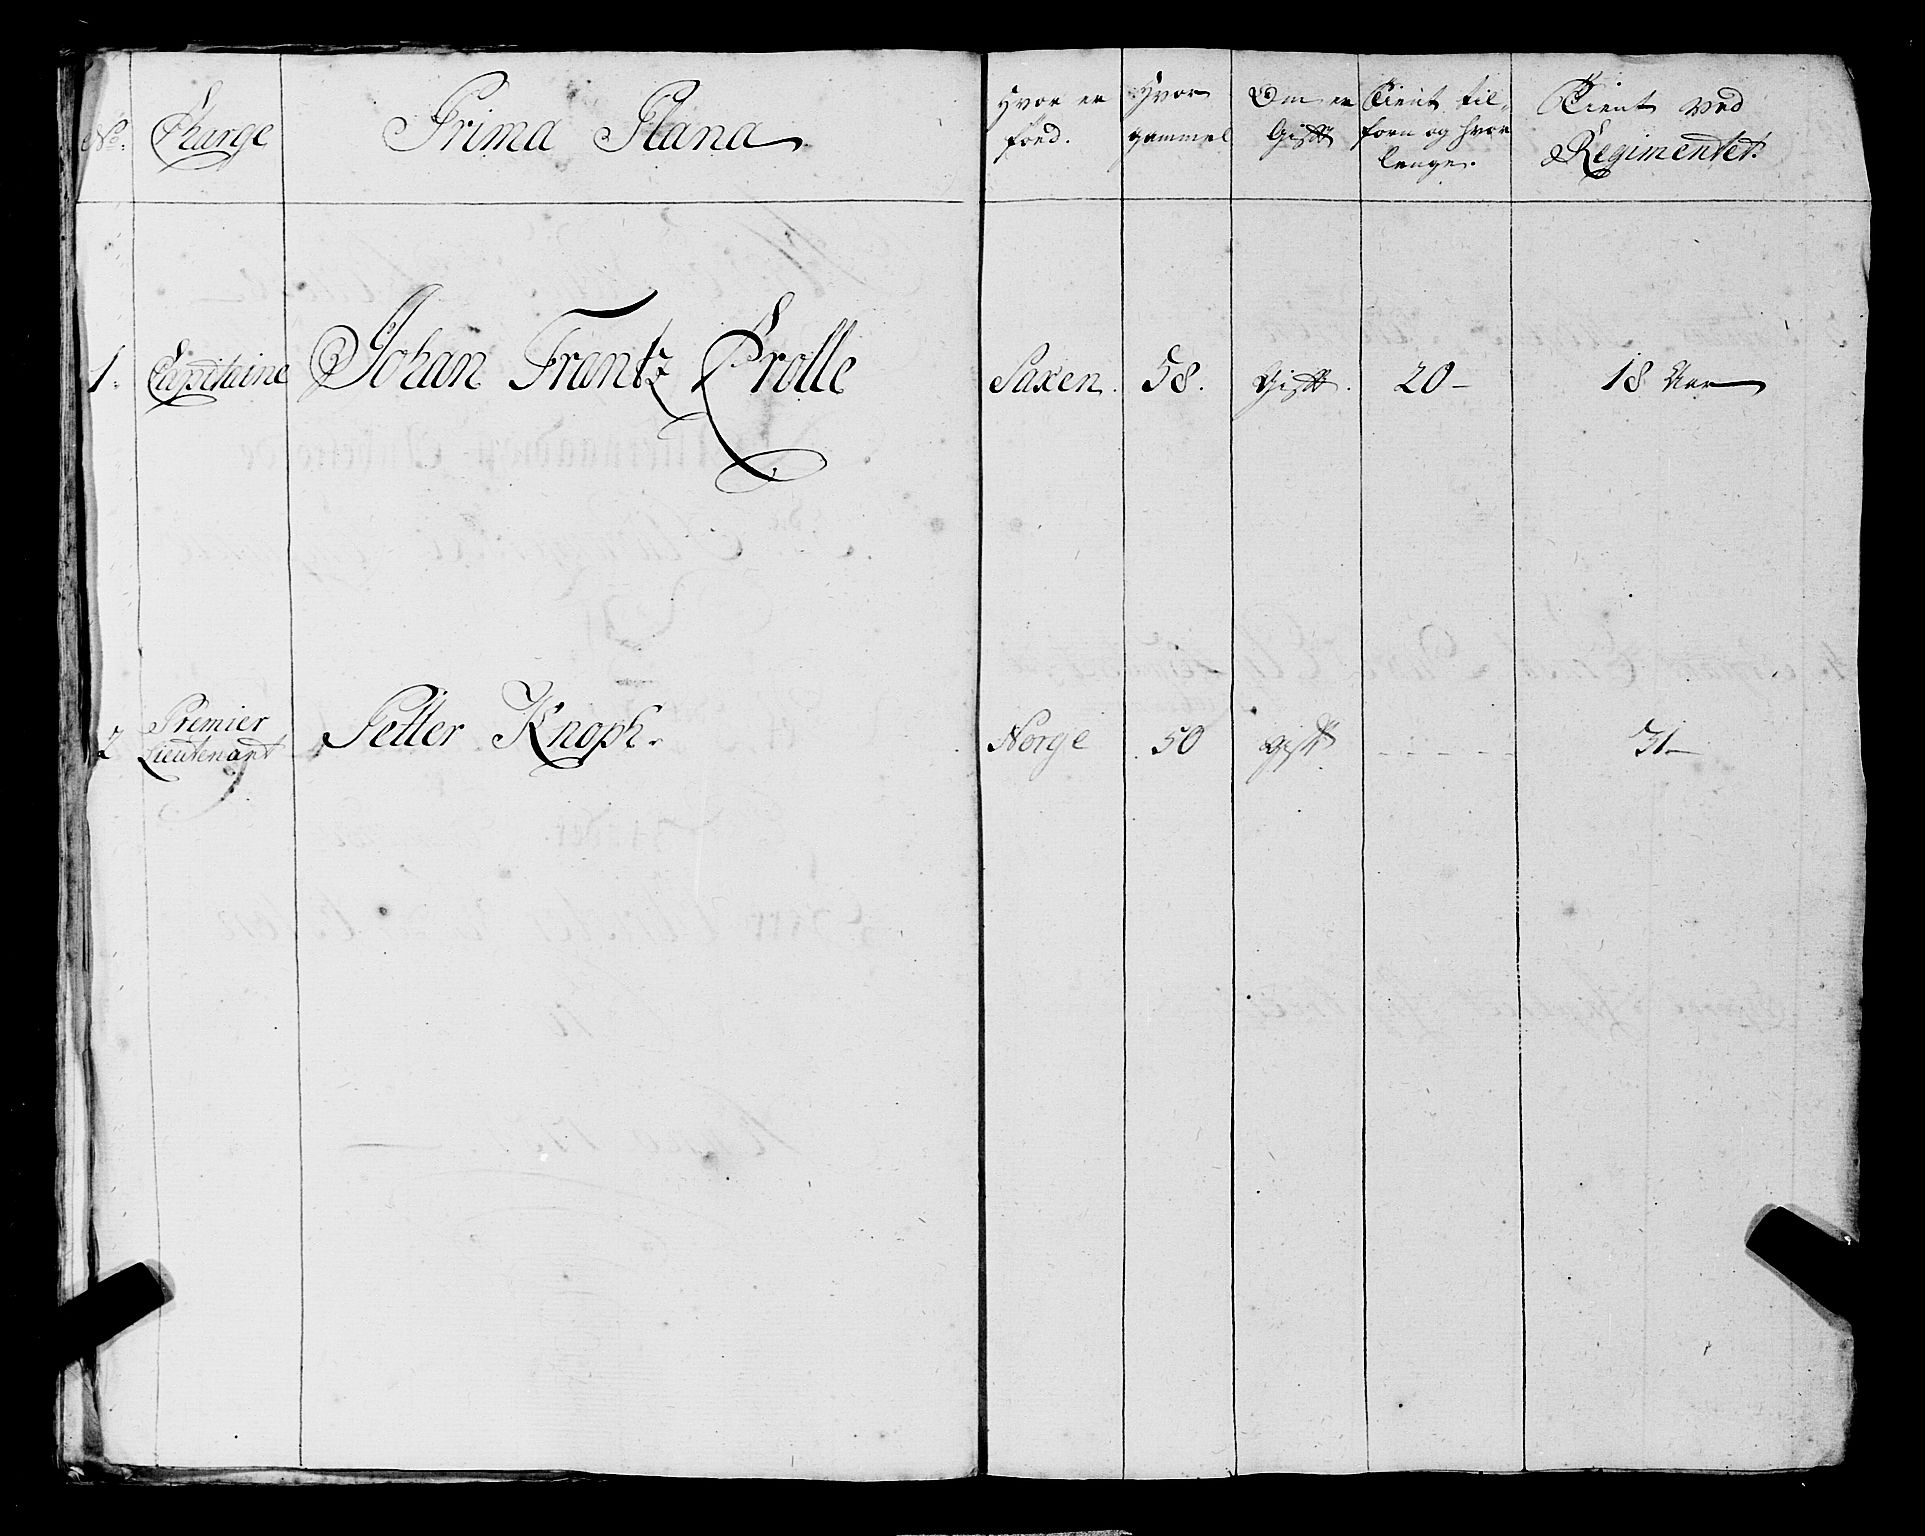 No. Charge Prima Plana Hvor er föed. Hvor gammel Om er Gift Tient til- forn og hvor lenge. Tient ved Regimentet.
1. Capitaine Johan Frantz Brolle Saxen. 58. Gift. 20- 18 Aar
2 Premier Lieutenant Petter Knoph. Norge 50 gift - - - - - 31-